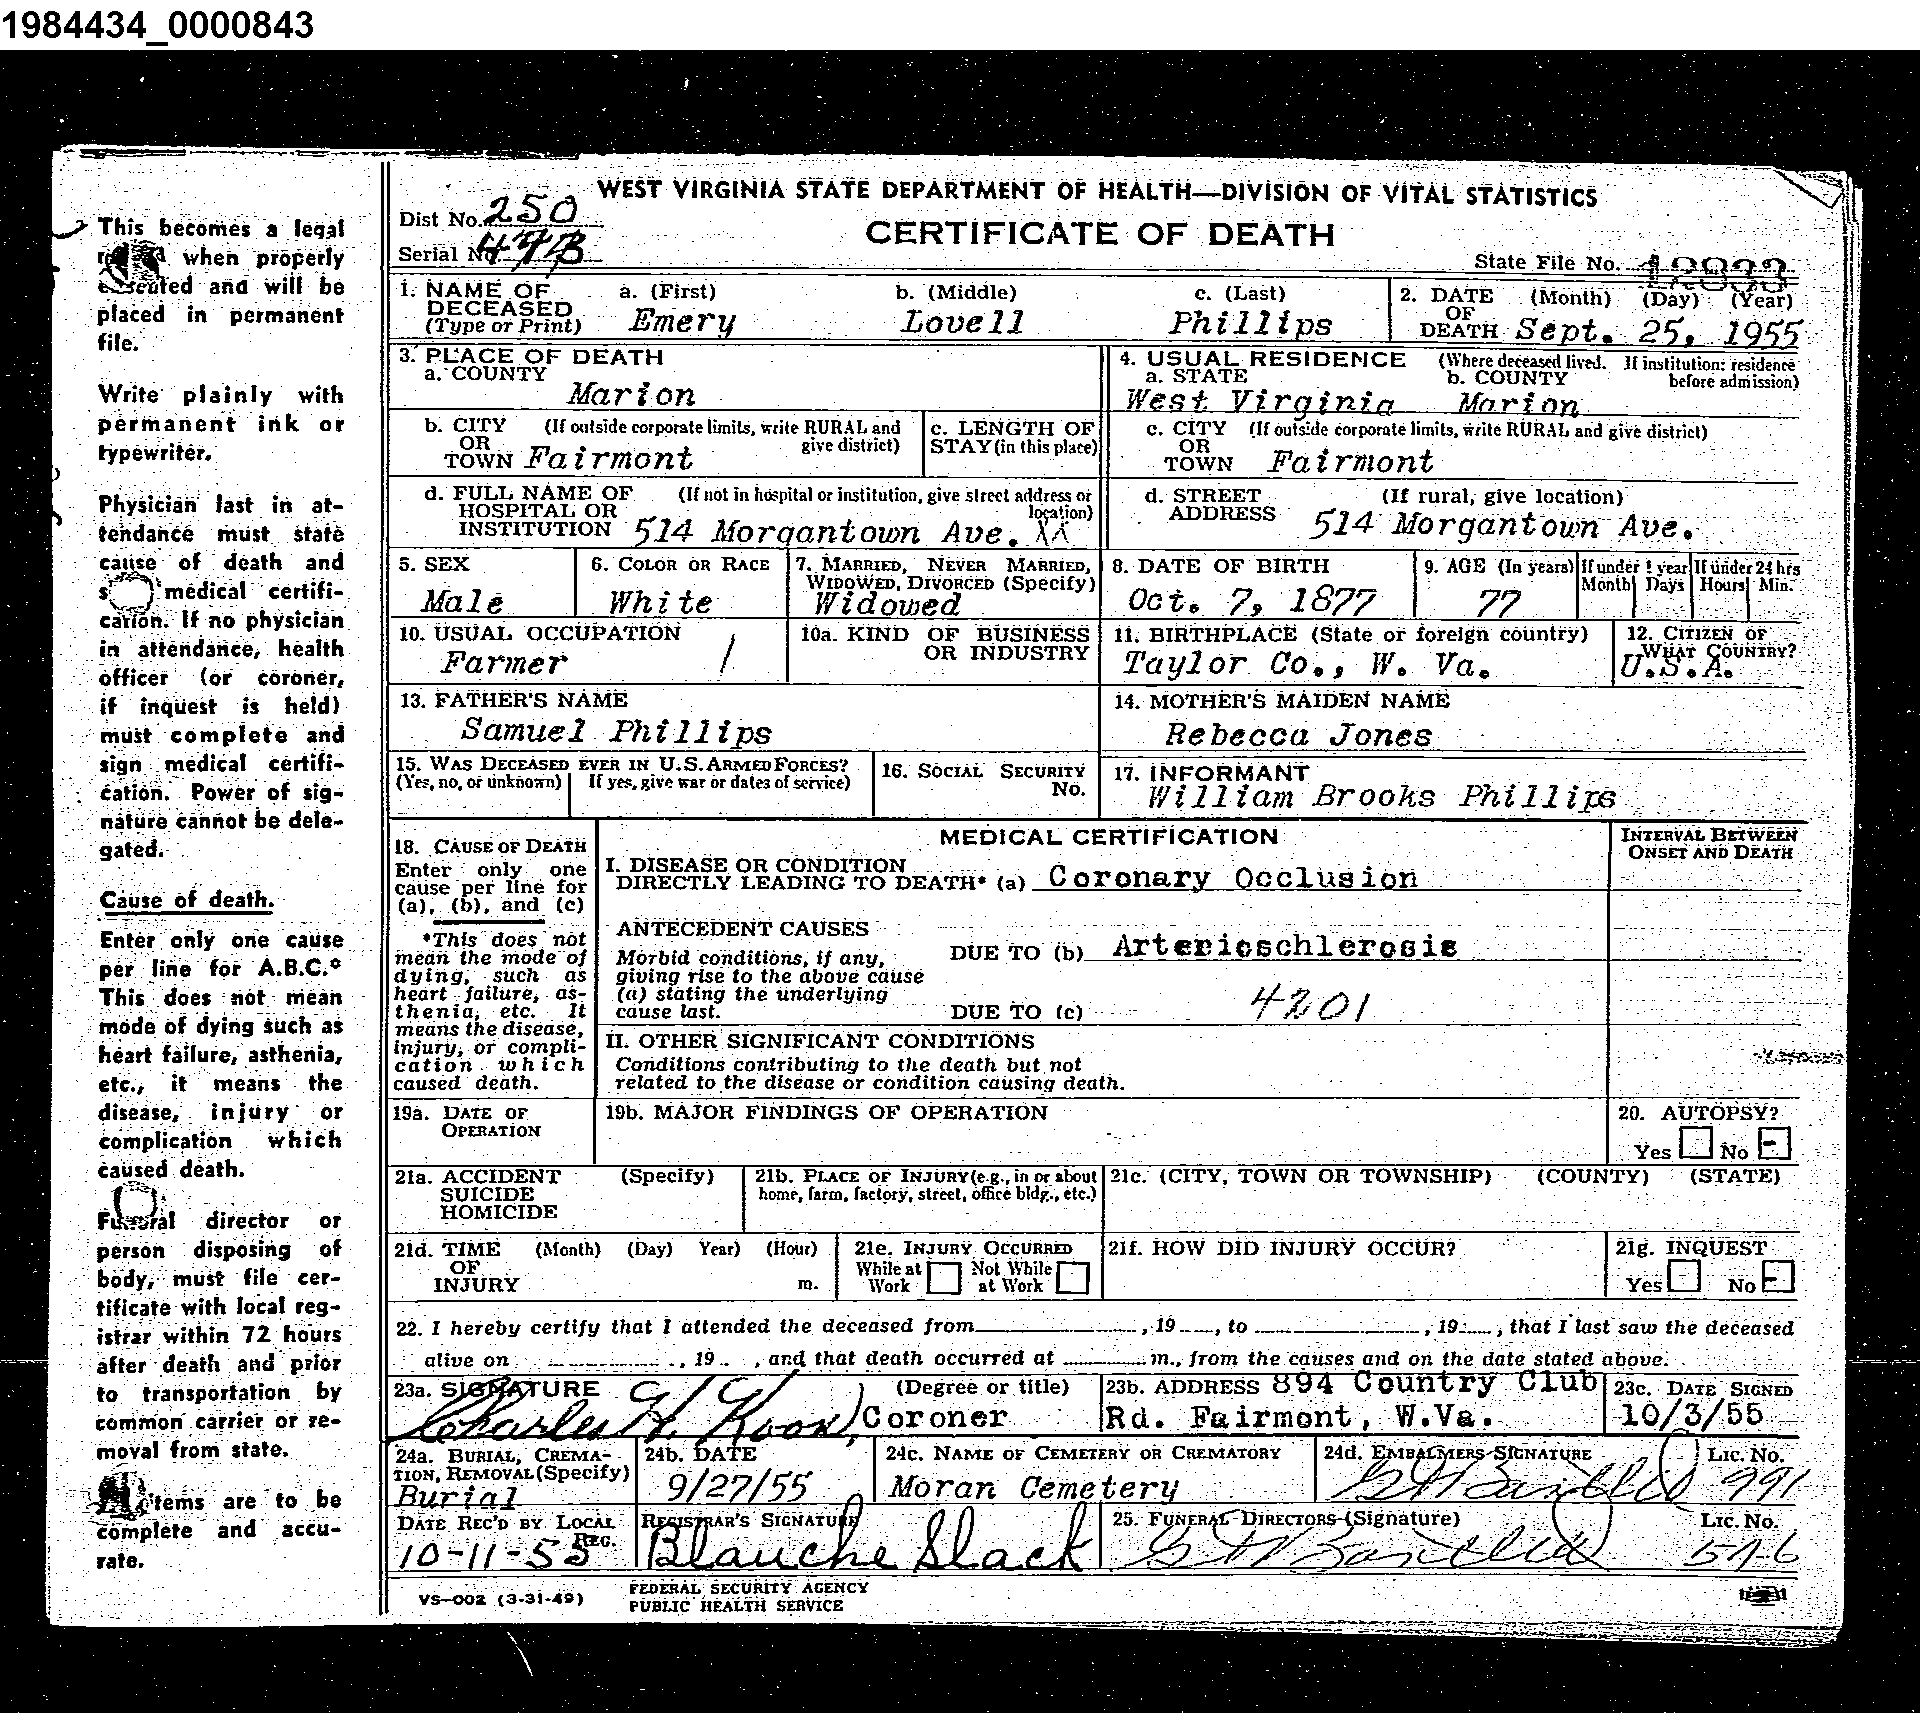 1984434_0000843
This becomes a legal
when properly
executed and will be
placed in permanent
file.
Write plainly with
permanent ink or
typewriter.
Physician last in at-
tendance must state
cause of death and
medical certifi-
cation. If no physician
in attendance, health
officer (or coroner,
if inquest is held)
must complete and
sign medical certifi-
cation. Power of sig-
nature cannot be dele-
gated.
Cause of death.
Enter only one cause
per line for A.B.C.*
This does not mean
mode of dying such as
heart failure, asthenia,
etc., it means the
disease, injury or
complication which
caused death.
Funeral director or
person disposing of
body, must file cer-
tificate with local reg-
istrar within 72 hours
after death and prior
to transportation by
common carrier or re-
moval from state.
items are to be
complete and accu-
rate.
WEST VIRGINIA STATE DEPARTMENT OF HEALTH—DIVISION OF VITAL STATISTICS
Dist No. 250
CERTIFICATE OF DEATH
Serial No.
State File No.
1. NAME OF DECEASED (Type or Print)
a. (First) Emery
b. (Middle) Lovell
c. (Last) Phillips
2. DATE OF DEATH (Month) (Day) (Year)
Sept. 25, 1955
3. PLACE OF DEATH
a. COUNTY
Marion
4. USUAL RESIDENCE (Where deceased lived. If institution: residence before admission)
a. STATE b. COUNTY
West Virginia Marion
b. CITY OR TOWN (If outside corporate limits, write RURAL and give district)
Fairmont
c. LENGTH OF STAY (in this place)
c. CITY OR TOWN (If outside corporate limits, write RURAL and give district)
Fairmont
d. FULL NAME OF HOSPITAL OR INSTITUTION (If not in hospital or institution, give street address or location)
514 Morgantown Ave. XX
d. STREET ADDRESS (If rural, give location)
514 Morgantown Ave.
5. SEX
Male
6. COLOR OR RACE
White
7. MARRIED, NEVER MARRIED, WIDOWED, DIVORCED (Specify)
Widowed
8. DATE OF BIRTH
Oct. 7, 1877
9. AGE (In years)
77
If under 1 year
Month Days
If under 24 hrs
Hours Min.
10. USUAL OCCUPATION
Farmer /
10a. KIND OF BUSINESS OR INDUSTRY
11. BIRTHPLACE (State or foreign country)
Taylor Co., W. Va.
12. CITIZEN OF WHAT COUNTRY?
U.S.A.
13. FATHER'S NAME
Samuel Phillips
14. MOTHER'S MAIDEN NAME
Rebecca Jones
15. WAS DECEASED EVER IN U.S. ARMED FORCES?
(Yes, no, or unknown) If yes, give war or dates of service)
16. SOCIAL SECURITY No.
17. INFORMANT
William Brooks Phillips
18. CAUSE OF DEATH
Enter only one
cause per line for
(a), (b), and (c)
*This does not
mean the mode of
dying, such as
heart failure, as-
thenia, etc. It
means the disease,
injury, or compli-
cation which
caused death.
MEDICAL CERTIFICATION
INTERVAL BETWEEN ONSET AND DEATH
I. DISEASE OR CONDITION
DIRECTLY LEADING TO DEATH* (a) Coronary Occlusion
ANTECEDENT CAUSES
Morbid conditions, if any,
giving rise to the above cause
(a) stating the underlying
cause last.
DUE TO (b) Arterioschlerosis
DUE TO (c) 4201
II. OTHER SIGNIFICANT CONDITIONS
Conditions contributing to the death but not
related to the disease or condition causing death.
19a. DATE OF OPERATION
19b. MAJOR FINDINGS OF OPERATION
20. AUTOPSY?
Yes No -
21a. ACCIDENT SUICIDE HOMICIDE (Specify)
21b. PLACE OF INJURY (e.g., in or about home, farm, factory, street, office bldg., etc.)
21c. (CITY, TOWN OR TOWNSHIP) (COUNTY) (STATE)
21d. TIME OF INJURY (Month) (Day) Year) (Hour) m.
21e. INJURY OCCURRED
While at Work Not While at Work
21f. HOW DID INJURY OCCUR?
21g. INQUEST
Yes No -
22. I hereby certify that I attended the deceased from , 19 , to , 19 , that I last saw the deceased
alive on , 19 , and that death occurred at m., from the causes and on the date stated above.
23a. SIGNATURE (Degree or title)
Charles H. Koon, Coroner
23b. ADDRESS 894 Country Club
Rd. Fairmont, W.Va.
23c. DATE SIGNED
10/3/55
24a. BURIAL, CREMA-
TION, REMOVAL (Specify)
Burial
24b. DATE
9/27/55
24c. NAME OF CEMETERY OR CREMATORY
Moran Cemetery
24d. EMBALMERS SIGNATURE Lic. No.
991
DATE REC'D BY LOCAL REG.
10-11-55
REGISTRAR'S SIGNATURE
Blanche Slack
25. FUNERAL DIRECTORS (Signature) Lic. No.
VS—002 (3-31-49)
FEDERAL SECURITY AGENCY
PUBLIC HEALTH SERVICE